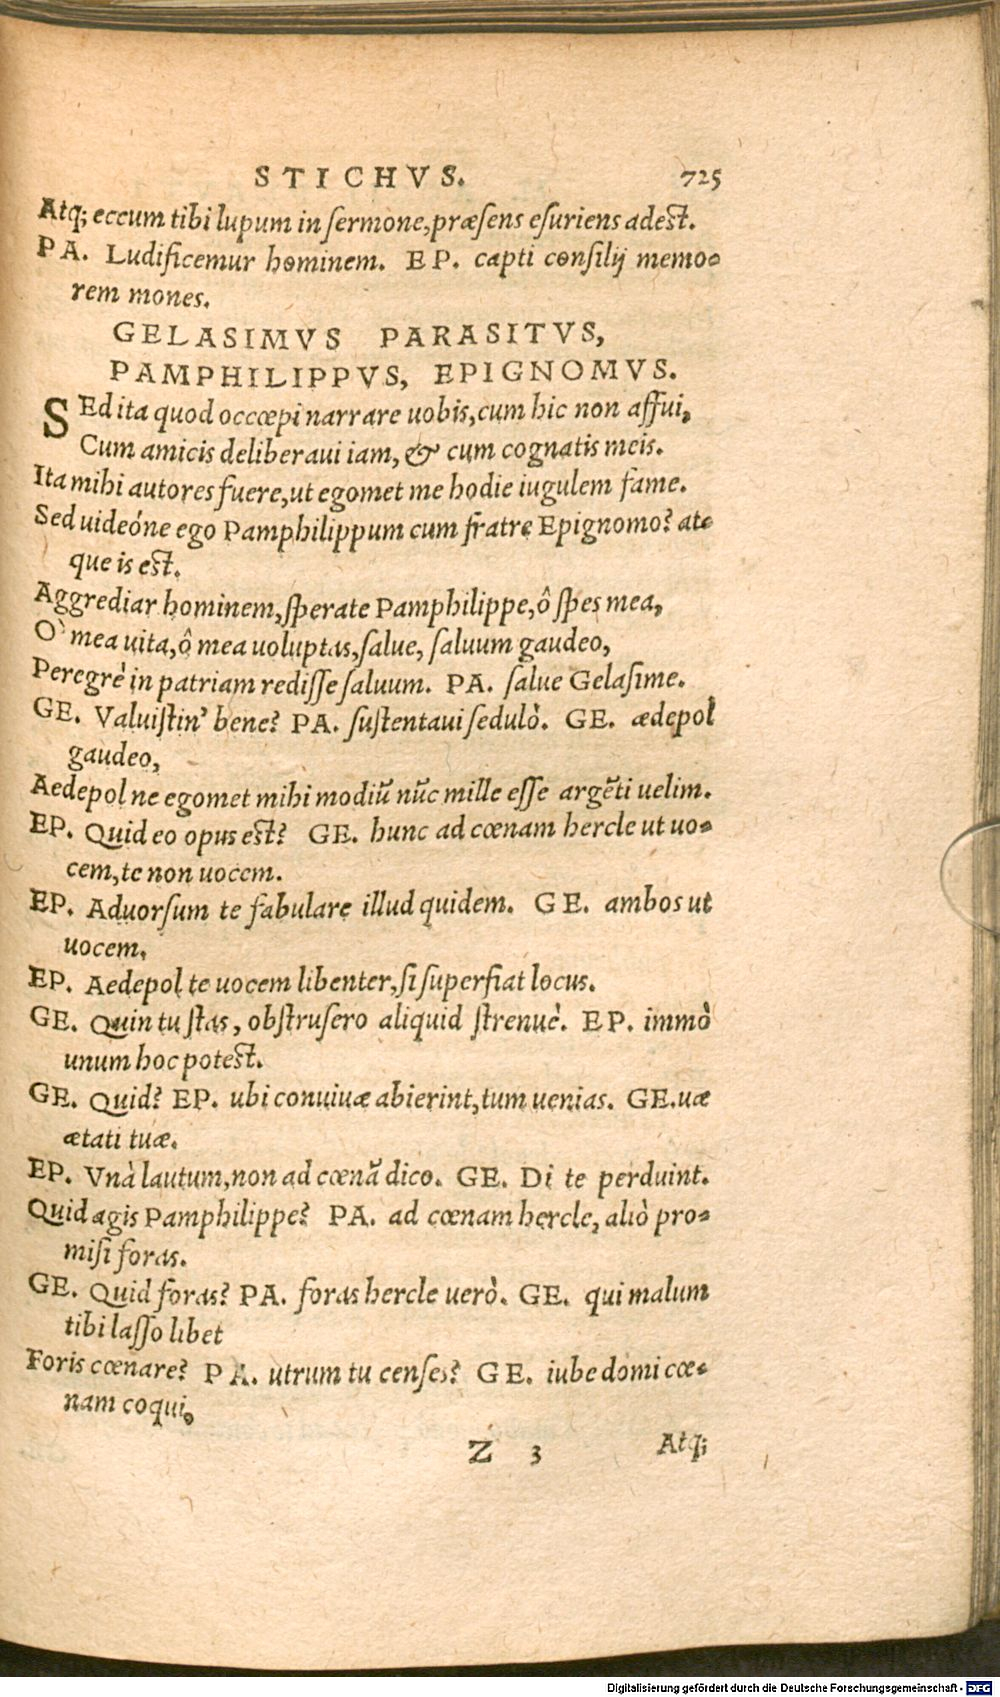 STICHVS. 725
Atq; eccum tibi lupum in sermone, præsens esuriens adest.
PA. Ludificemur hominem. EP. capti consilij memo-
rem mones.
GELASIMVS PARASITVS,
PAMPHILIPPVS, EPIGNOMVS.
SEd ita quod occœpi narrare uobis, cum hic non affui,
Cum amicis deliberaui iam, & cum cognatis meis.
Ita mihi autores fuere, ut egomet me hodie iugulem fame.
Sed uideóne ego Pamphilippum cum fratre Epignomo? at-
que is est.
Aggrediar hominem, sperate Pamphilippe, ô spes mea,
O` mea uita, ô mea uoluptas, salue, saluum gaudeo,
Peregrè in patriam redisse saluum. PA. salue Gelasime.
GE. Valuistin' bene? PA. sustentaui sedulò. GE. ædepol
gaudeo,
Aedepol ne egomet mihi modiũ nũc mille esse argẽti uelim.
EP. Quid eo opus est? GE. hunc ad cœnam hercle ut uo-
cem, te non uocem.
EP. Aduorsum te fabulare illud quidem. GE. ambos ut
uocem.
EP. Aedepol te uocem libenter, si superfiat locus.
GE. Quin tu stas, obstrusero aliquid strenuè. EP. immò
unum hoc potest.
GE. Quid? EP. ubi conuiuæ abierint, tum uenias. GE. uæ
ætati tuæ.
EP. Vnà lautum, non ad cœnã dico. GE. Di te perduint.
Quid agis Pamphilippe? PA. ad cœnam hercle, aliò pro-
misi foras.
GE. Quid foras? PA. foras hercle uerò. GE. qui malum
tibi lasso libet
Foris cœnare? PA. utrum tu censes? GE. iube domi cœ-
nam coqui,
Z 3 Atq;
Digitalisierung gefördert durch die Deutsche Forschungsgemeinschaft - DFG